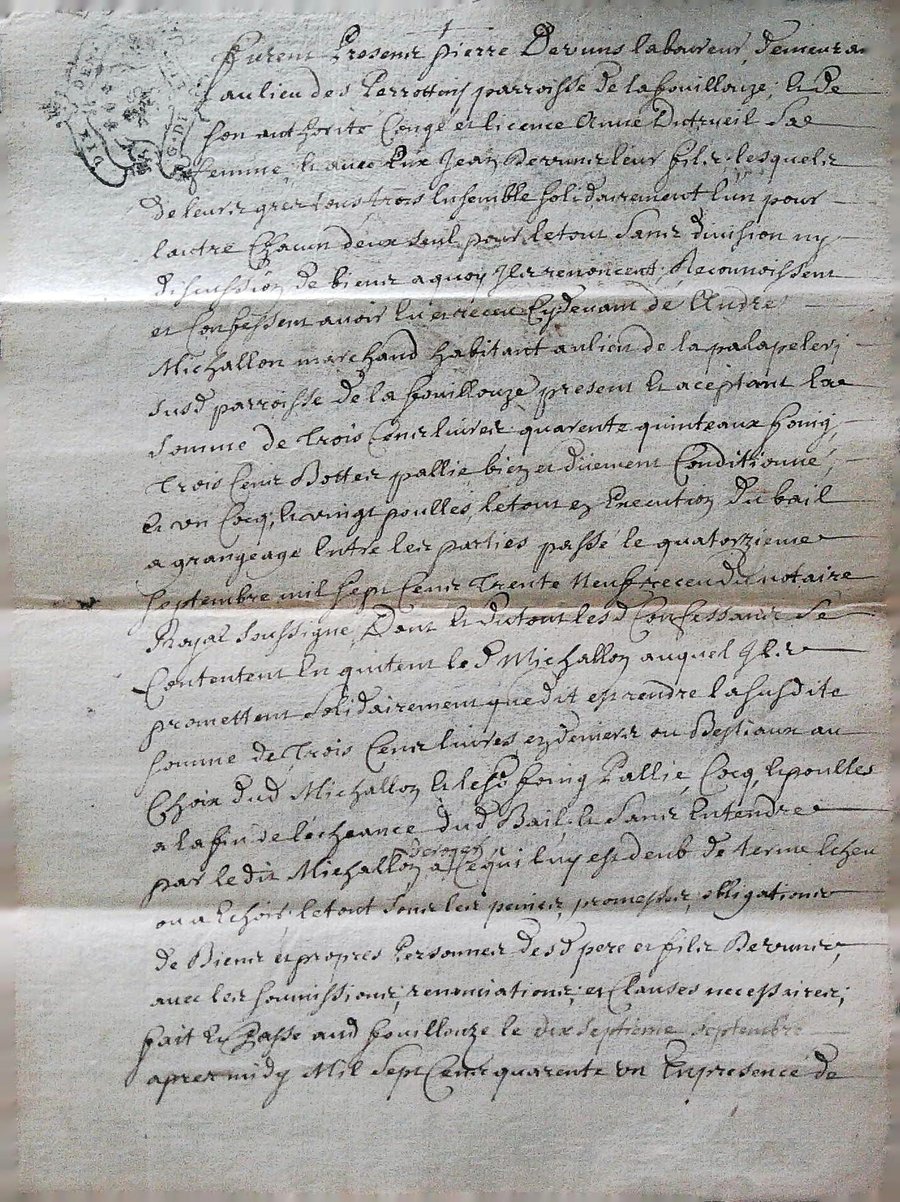 furent Presens pierre Deruns laboureur, demeuran
au lieu des Perrottins parroisse de la fouillouze, et de
son authorité Congé et licence Anne Dutreüil Sae
femme, et avec Eux Jean Deruns leur fils, lesquels
de leurs grez tous trois Ensemble solidairement l'un pour
lautre Chacun deux seul pour le tout Sans division ny
discussion de biens a quoy Ils renoncent, Reconnoissent
et Confessent avoir Eu et receu Cydevant de André
Michallon marchand habitant au lieu de la palapelery
susd parroisse de la fouillouze present et aceptant Lae
somme de Trois Cens livres quarente quinteaux foing,
Trois Cens Bottes pallie bien et düement Conditionné,
et un Cocq, et vingt poulles, le tout en Execution du bail
a grangeage Entre les parties passé le quatorzieme
septembre mil sept Cens Trente Neuf receu du notaire
Royal soussigné, Dont et du tout lesd Confessans Se
Contentent En quittent le d Michallon auquel Ils
promettent solidairement que dit est rendre la susdite
somme de Trois Cens livres en deniers ou Bestiaux au
Choix dud Michallon et lesd foing Pallie, Cocq, et poulles
a la fin de l'échéance dud Bail, et Sans Entendre
par le dit Michallon deroger a Ce qui luy est deub de terme Echeu
ou a Echoir, le tout sous les peines, promesses, obligations
de Biens et propres Personnes desd pere et fils Deruns,
avec les soumissions, renonciations, et Clauses necessaires,
fait et Passé aud fouillouze le dix septieme septembre
apres midy Mil Sept Cens quarente un En presence de